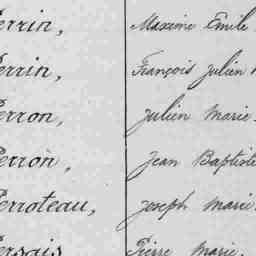 Perrin, Maxime Emile
Perrin, François Julien
Perron, Julien Marie
Perron, Jean Baptiste
Perroteau, Joseph Marie
Persais Pierre Marie.